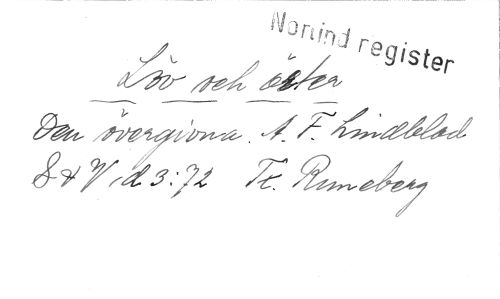 Norlind register
Löv och örter
Den övergivna. A. F. Lindblad
S & V, d 3:72 Fr. Runeberg